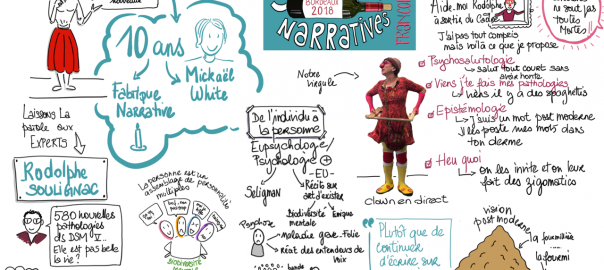 nouveaux
10 ans
Fabrique
Narrative
Mickaël
White
BORDEAUX
2018
NARRATIVES
FRANCO
Aide-moi Rodolphe
à sortir du Cadre
ni sont pas
toutes
Mortes !!
J'ai pas tout compris
mais voilà ce que je propose
Psychosalutologie
salut tout court sans
avoir honte
Viens j'te fais mes pathologies
viens il y a des spaghettis
Epistémologie
J'suis un mot post moderne
J'les poste mes mots dans
ton derme
Heu quoi
on les invite et on leur
fait des zigomatics
Notre
virgule
clown en direct
Laissons La
parole aux
EXPERTS
Rodolphe
SOULIGNAC
580 nouvelles
pathologies
ds DSM V...
Elle est pas belle
la vie ?
La personne est un
assemblage de personnalités
multiples
BIODIVERSITÉ
De l'individu à
la personne
Eupsychologie/
Psychologie +
-EU-
Seligman
Récits sur
art d'exister
Biodiversité
mentale
Ethique
Psychose
Maladie grave - Folie
Réat des entendeurs de
voix
bande
"Plutôt que de
continuer
d'écrire sur
vision
post moderne
la fourmilière
la fourmi